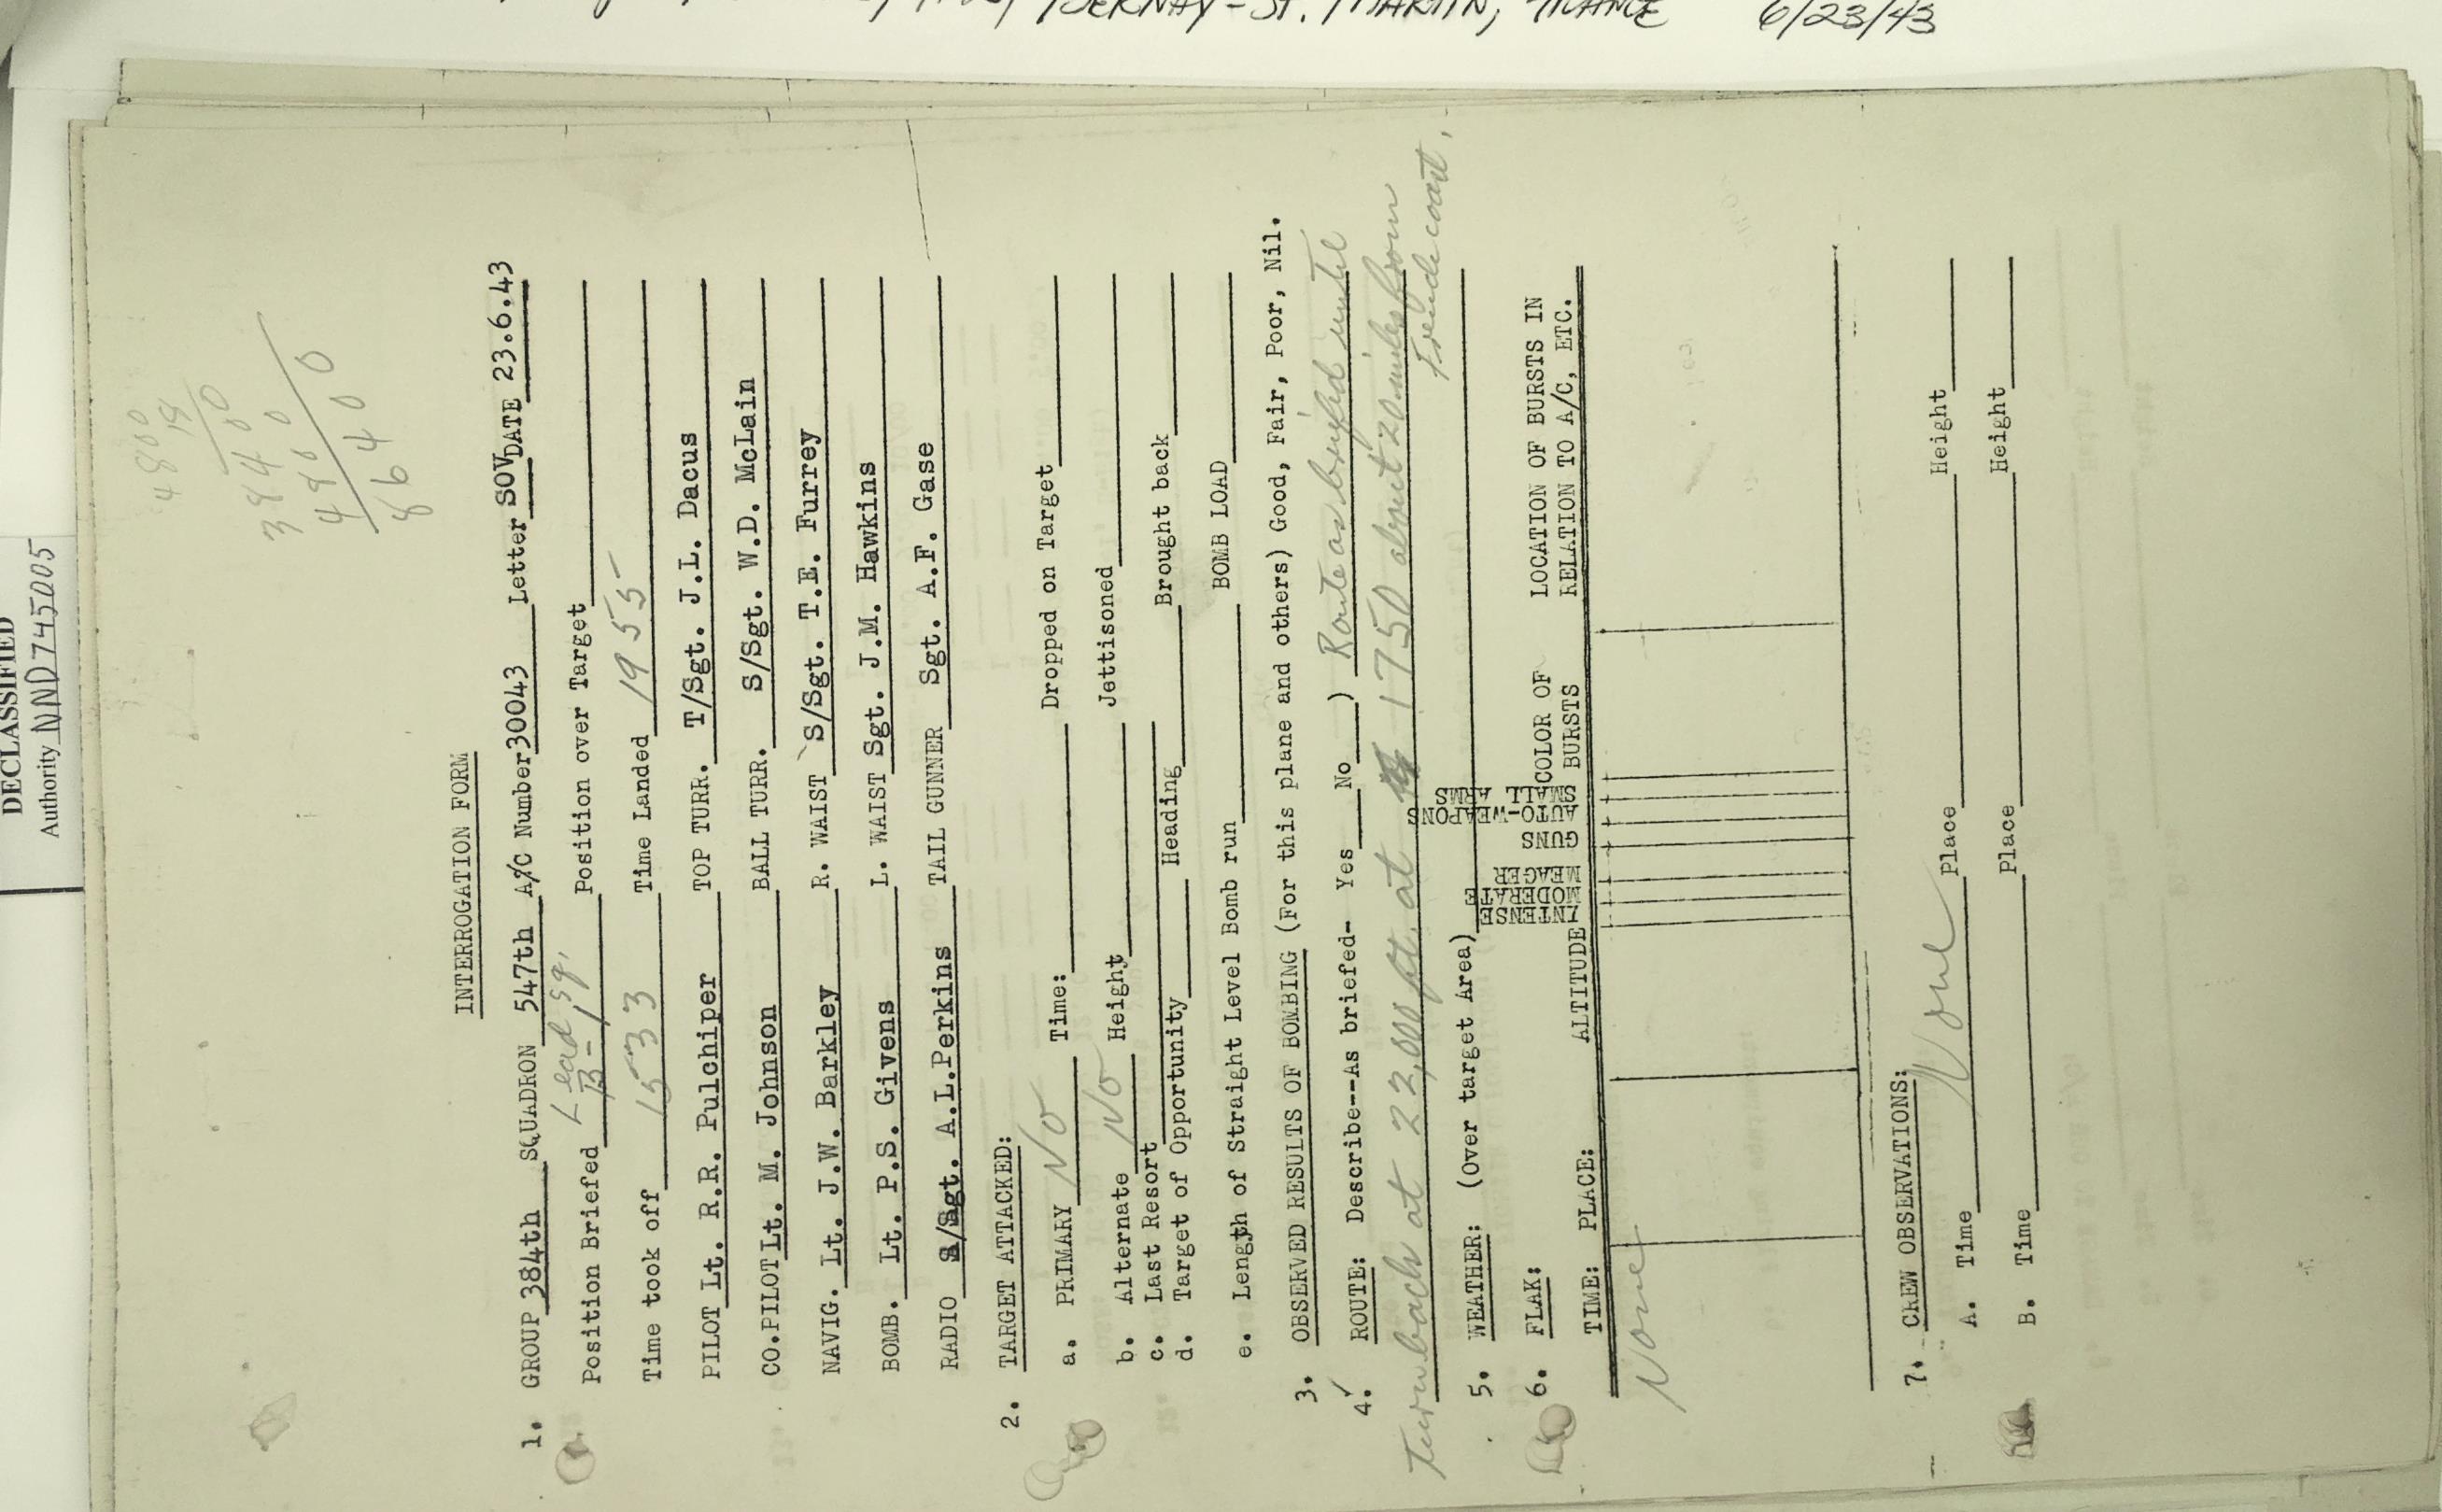 BERNAY-ST. MARTIN, FRANCE 6/23/43
DECLASSIFIED
Authority NND745005
4800
19
8640 0
INTERROGATION FORM
1. GROUP 384th SQUADRON 547th A/C Number 30043 Letter SOV DATE 23.6.43
Position Briefed Lead Sq. Position over Target
Time took off 1533 Time Landed 1955
PILOT Lt. R.R. Pulchiper TOP TURR. T/Sgt. J.L. Dacus
CO.PILOT Lt. M. Johnson BALL TURR. S/Sgt. W.D. McLain
NAVIG. Lt. J.W. Barkley R. WAIST S/Sgt. T.E. Furrey
BOMB. Lt. P.S. Givens L. WAIST Sgt. J.M. Hawkins
RADIO S/Sgt. A.L.Perkins TAIL GUNNER Sgt. A.F. Gase
2. TARGET ATTACKED:
a. PRIMARY No Time: Dropped on Target
b. Alternate No Height Jettisoned
c. Last Resort
d. Target of Opportunity Heading Brought back
e. Length of Straight Level Bomb run BOMB LOAD
3. OBSERVED RESULTS OF BOMBING (For this plane and others) Good, Fair, Poor, Nil.
4. ROUTE: Describe--As briefed- Yes No ) Route as briefed until
Turn back at 22,000 ft. at 1750 about 20 miles from
French coast.
5. WEATHER: (Over target Area)
6. FLAK:
TIME: PLACE: ALTITUDE INTENSE MODERATE MEAGER GUNS AUTO-WEAPONS SMALL ARMS COLOR OF BURSTS LOCATION OF BURSTS IN RELATION TO A/C, ETC.
None
7. CREW OBSERVATIONS:
None
A. Time Place Height
B. Time Place Height